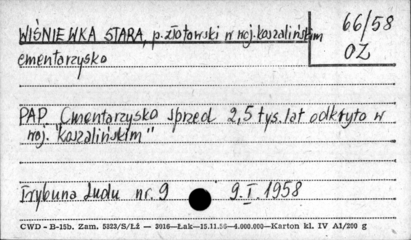 WIŚNIEWKA STARA, p. złotowski w woj. koszalińskim
66/58
OZ
cmentarzysko
PAP Cmentarzysko sprzed 2,5 tys. lat odkryto w
woj. "Koszalińskim"
Trybuna Ludu nr. 9 9.I.1958
CWD - B-15b. Zam. 5323/S/Łż — 3016—Łak—15.11.56—4.000.000—Karton kl. IV A1/200 g